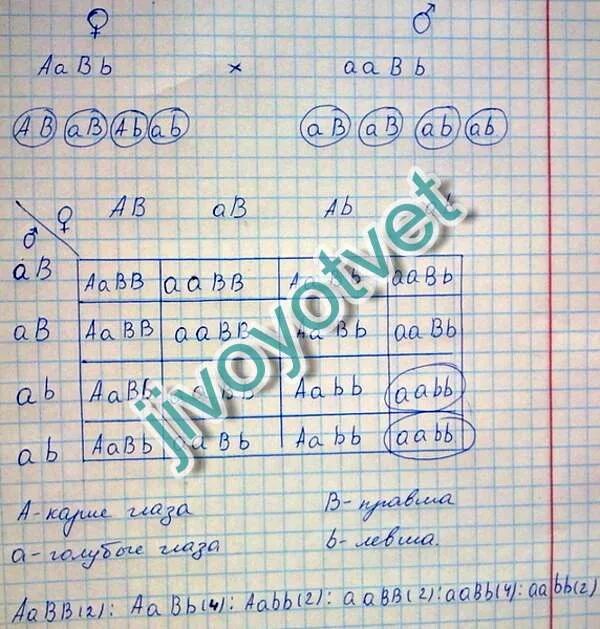 ♀ ♂
AaBb × aaBb
AB aB Ab ab aB aB ab ab
♀ AB aB Ab
♂
aB AaBB aaBB aaBb
aB AaBB aaBB AaBb aaBb
ab AaBB Aabb aabb
ab AaBb aaBb Aabb aabb
jivoyotvet
A-карие глаза B-правша
a-голубые глаза b-левша.
AaBB(2): AaBb(4): Aabb(2): aaBB(2): aaBb(4): aabb(2)